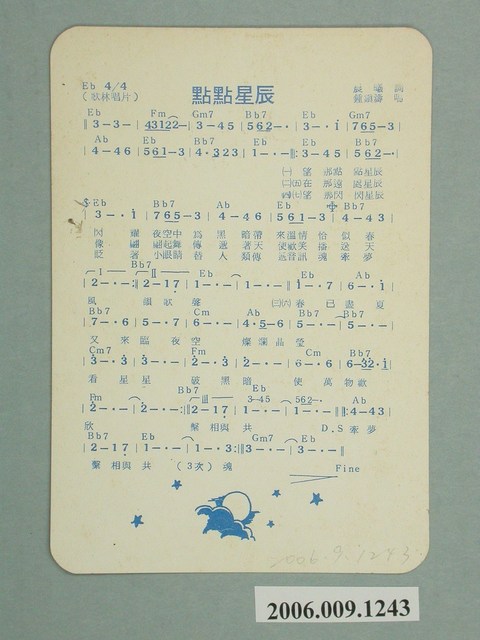 Eb 4/4
(歌林唱片)
點點星辰
Eb Fm Gm7 Bb7 Eb Gm7
‖ 3-3- | 43122- | 3-45 | 562-· | 3-·1 | 765-3 |
Ab Eb Bb7 Eb Bb7
| 4-46 | 561-3 | 4·323 | 1-·-‖: 3-45 | 562-· |
㈠望 那點 點星辰
㈡㈤在 那遠 處星辰
㈣㈦望 那閃 閃星辰
Eb Bb7 Ab Eb Bb7
3-·1 | 765-3 | 4-46 | 561-3 | 4-43 |
閃 耀 夜空中 為 黑暗帶 來溫情 恰 似 春
像 翩 翩起舞 傳 遞 著天 使歡笑 播 送 天
眨 著 小眼睛 替 人 類傳 遞音訊 魂 牽 夢
Bb7 Eb Ab
2-·- :‖ 2-17 | 1-·- | 1-·- ‖ 1-·7 | 6-·1 |
風 韻 歌 聲 ㈢㈥春 已 盡 夏
Bb7 Cm Ab Bb7 Bb7
| 7-·6 | 5-·7 | 6-·- | 4·5-6 | 5-·- | 5-·- |
又 來 臨 夜 空 燦 爛 晶 瑩
Cm7 Fm Cm Bb7
| 3-·3 | 3-·- | 2-·3 | 2-·- | 6-·6 | 6-32·1 |
看 星 星 破 黑 暗 使 萬 物 歡
Fm Bb7 Eb
| 2-·- | 2-·- :‖ 2-17 | 1-·- | 1-·- ‖ 4-43 |
3-45 562-·
欣 縈 相與 共 D.S 牽 夢
Bb7 Eb Gm7 Eb
| 2-17 | 1-·- | 1-·3 :‖ 3-·- | 3-·- |
縈 相與 共 (3次) 魂 Fine
2006.9.1243
2006.009.1243